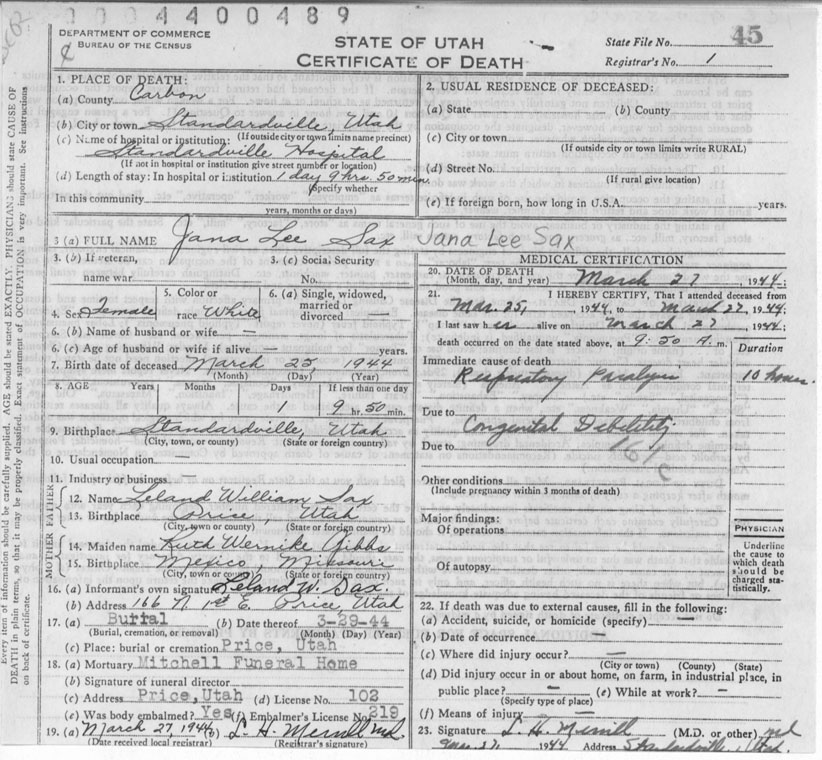 0004400489
DEPARTMENT OF COMMERCE
BUREAU OF THE CENSUS
STATE OF UTAH
CERTIFICATE OF DEATH
State File No. 45
Registrar's No. 1
Every item of information should be carefully supplied. AGE should be stated EXACTLY. PHYSICIANS should state CAUSE OF
DEATH in plain terms, so that it may be properly classified. Exact statement of OCCUPATION is very important. See instructions
on back of certificate.
1. PLACE OF DEATH:
(a) County Carbon
(b) City or town Standardville, Utah
(If outside city or town limits name precinct)
(c) Name of hospital or institution:
Standardville Hospital
(If not in hospital or institution give street number or location)
(d) Length of stay: In hospital or institution 1 day 9 hrs. 50 min.
(Specify whether
In this community
years, months or days)
2. USUAL RESIDENCE OF DECEASED:
(a) State (b) County
(c) City or town
(If outside city or town limits write RURAL)
(d) Street No.
(If rural give location)
(e) If foreign born, how long in U.S.A. years.
3 (a) FULL NAME Jana Lee Sax Jana Lee Sax
3. (b) If veteran,
name war
3. (c) Social Security
No.
4. Sex Female
5. Color or
race White
6. (a) Single, widowed, married or
divorced —
6. (b) Name of husband or wife —
6. (c) Age of husband or wife if alive — years.
7. Birth date of deceased March 25, 1944
(Month) (Day) (Year)
8. AGE Years Months Days If less than one day
1 9 hr. 50 min.
9. Birthplace Standardville, Utah
(City, town, or county) (State or foreign country)
10. Usual occupation —
11. Industry or business —
FATHER
12. Name Leland William Sax
13. Birthplace Price, Utah
(City, town or county) (State or foreign country)
MOTHER
14. Maiden name Ruth Wernike Gibbs
15. Birthplace Mexico, Missouri
(City, town or county) (State or foreign country)
16. (a) Informant's own signature Leland W. Sax.
(b) Address 166 N 1st E. Price, Utah
17. (a) Burial (b) Date thereof 3-29-44
(Burial, cremation, or removal) (Month) (Day) (Year)
(c) Place: burial or cremation Price, Utah
18. (a) Mortuary Mitchell Funeral Home
(b) Signature of funeral director
(c) Address Price, Utah (d) License No. 102
(e) Was body embalmed? Yes (f) Embalmer's License No. 219
19. (a) March 27, 1944 (b) L. H. Merrill md
(Date received local registrar) (Registrar's signature)
MEDICAL CERTIFICATION
20. DATE OF DEATH
(Month, day, and year) March 27, 1944
21. I HEREBY CERTIFY, That I attended deceased from
Mar. 25, 1944, to March 27, 1944;
I last saw her alive on March 27, 1944;
death occurred on the date stated above, at 9:50 A. m.
Duration
Immediate cause of death
Respiratory Paralysis 10 hours.
Due to Congenital Debility
Due to 161c
Other conditions
(Include pregnancy within 3 months of death)
Major findings:
Of operations
Of autopsy
PHYSICIAN
Underline
the cause to
which death
should be
charged sta-
tistically.
22. If death was due to external causes, fill in the following:
(a) Accident, suicide, or homicide (specify) —
(b) Date of occurrence —
(c) Where did injury occur? —
(City or town) (County) (State)
(d) Did injury occur in or about home, on farm, in industrial place, in
public place? — (e) While at work? —
(Specify type of place)
(f) Means of injury —
23. Signature L. H. Merrill (M.D. or other) md
Mar. 27, 1944 Address Standardville, Utah.